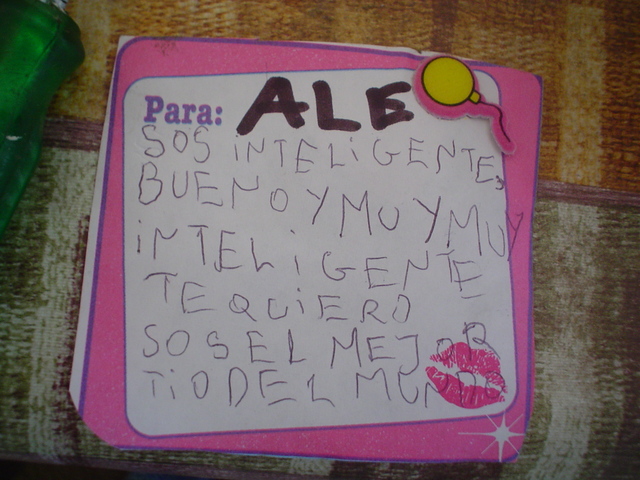 Para: ALE
SOS iNTELiGENTE,
BUENO Y MUY MUY
iNTELiGENTE
TE QUiERO
SOS EL MEJOR
TiO DEL MUNDO